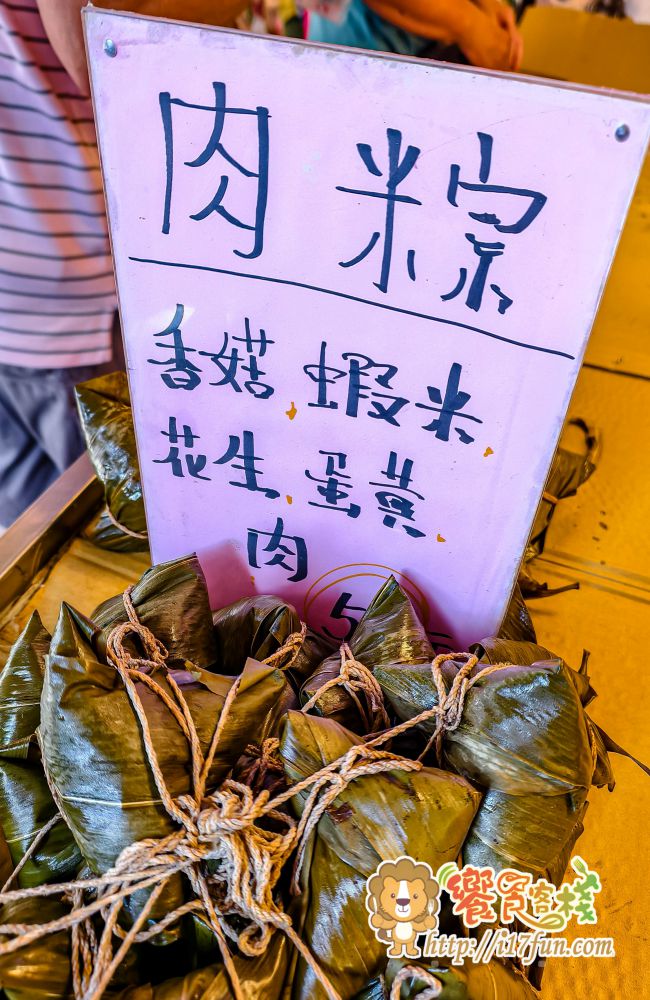 肉粽
香菇、虾米、
花生、蛋黃、
肉
饗食客棧
http://i17fun.com